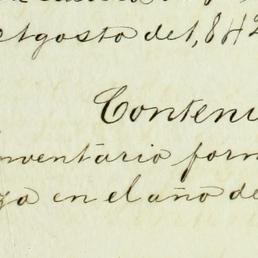 Agosto de 1,842
Conteni
nventário form
za en el año de